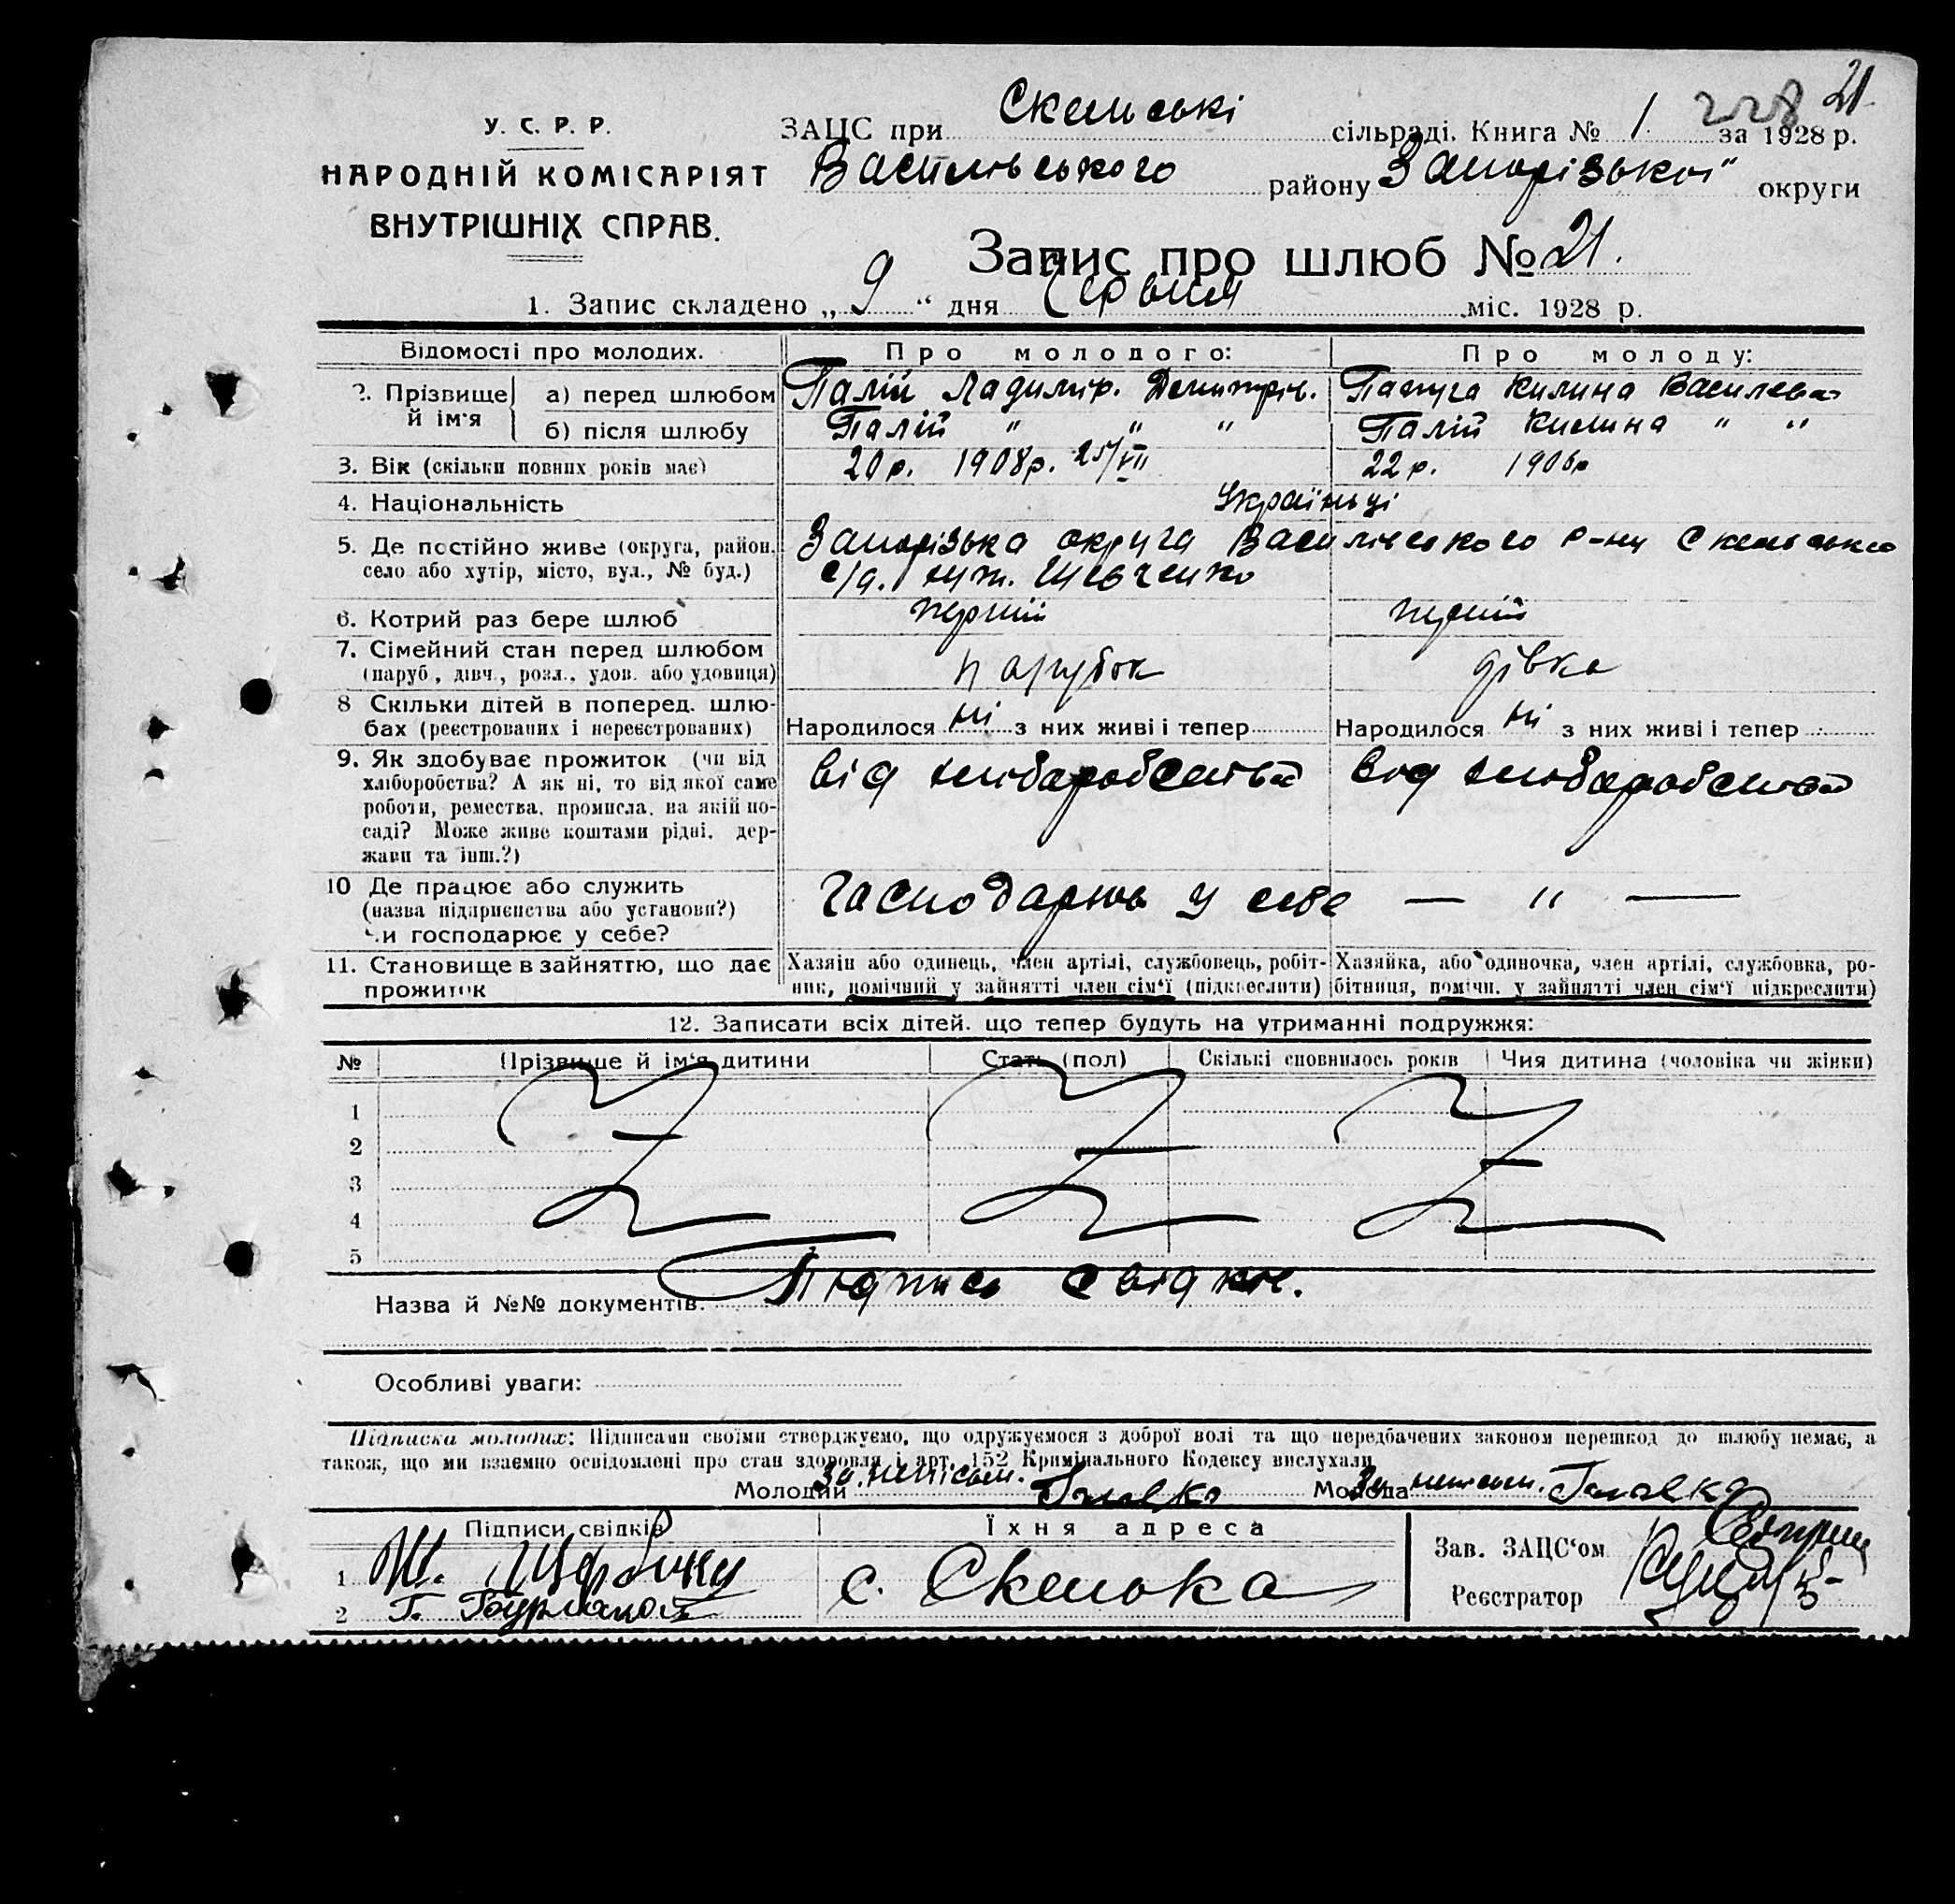 21
228
У. С. Р. Р.
НАРОДНІЙ КОМІСАРІЯТ
ВНУТРІШНІХ СПРАВ.
ЗАЦС при Скельські сільраді. Книга № 1 за 1928 р.
Василівського району Запорізької округи
Запис про шлюб № 21.
1. Запис складено „ 9 “ дня Червня міс. 1928 р.
Відомості про молодих. Про молодого: Про молоду:
2. Прізвище й ім'я а) перед шлюбом Палій Ладимір. Дмитрів. Килина Василева
б) після шлюбу Палій " " " Палій Килина " "
3. Вік (скільки повних років має) 20 р. 1908 р. 25/VII 22 р. 1906 р
4. Національність Українці
5. Де постійно живе (округа, район, село або хутір, місто, вул., № буд.) Запорізька округа Василівського р-ну Скельсько
с/р. хут. Шевченко
6. Котрий раз бере шлюб перший перший
7. Сімейний стан перед шлюбом (паруб., дівч., розл., удов. або удовиця) парубок дівка
8 Скільки дітей в поперед. шлюбах (реєстрованих і нереєстрованих) Народилося ні з них живі і тепер Народилося ні з них живі і тепер
9. Як здобуває прожиток (чи від
хліборобства? А як ні, то від якої саме
роботи, ремества, промисла, на якій по-
саді? Може живе коштами рідні, дер-
жави та інш.?)
від хліборобства від хліборобства
10 Де працює або служить
(назва підприємства або установи?)
Чи господарює у себе?
Господарює у себе — " —
11. Становище в зайняттю, що дає прожиток
Хазяїн або одинець, член артілі, службовець, робіт-
ник, помічний у зайнятті член сім'ї (підкреслити)
Хазяйка, або одиночка, член артілі, службовка, ро-
бітниця, помічн. у зайнятті член сім'ї підкреслити)
12. Записати всіх дітей, що тепер будуть на утриманні подружжя:
№ Прізвище й ім'я дитини Стать (пол) Скількі сповнилось років Чия дитина (чоловіка чи жінки)
1
2
3
4
5
Назва й №№ документів. Підпись свідків.
Особливі уваги:
Підписка молодих: Підписами своїми стверджуємо, що одружуємося з доброї волі та що передбачених законом перешкод до шлюбу немає, а
також, що ми взаємно освідомлені про стан здоровля і арт. 152 Кримінального Кодексу вислухали
Молодий За неписьм. Молода За неписьм.
Підписи свідків Їхня адреса Зав. ЗАЦС'ом
1 с. Скелька
2 Г. Реєстратор